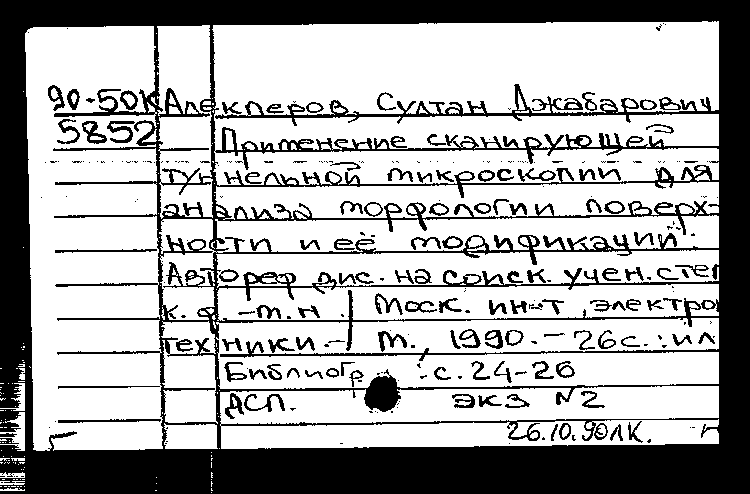 90-50К Алекперов, Султан Джабарович
5852 Применение сканирующей
туннельной микроскопии для
анализа морфологии поверх-
ности и её модификации:
Автореф дис. на соиск. учен. степ
к. ф.-т.н. / Моск. ин-т электро
техники.- М., 1990.- 26 с.: ил
Библиогр.: с. 24-26
ДСП. экз N2
26.10.90 ЛК.